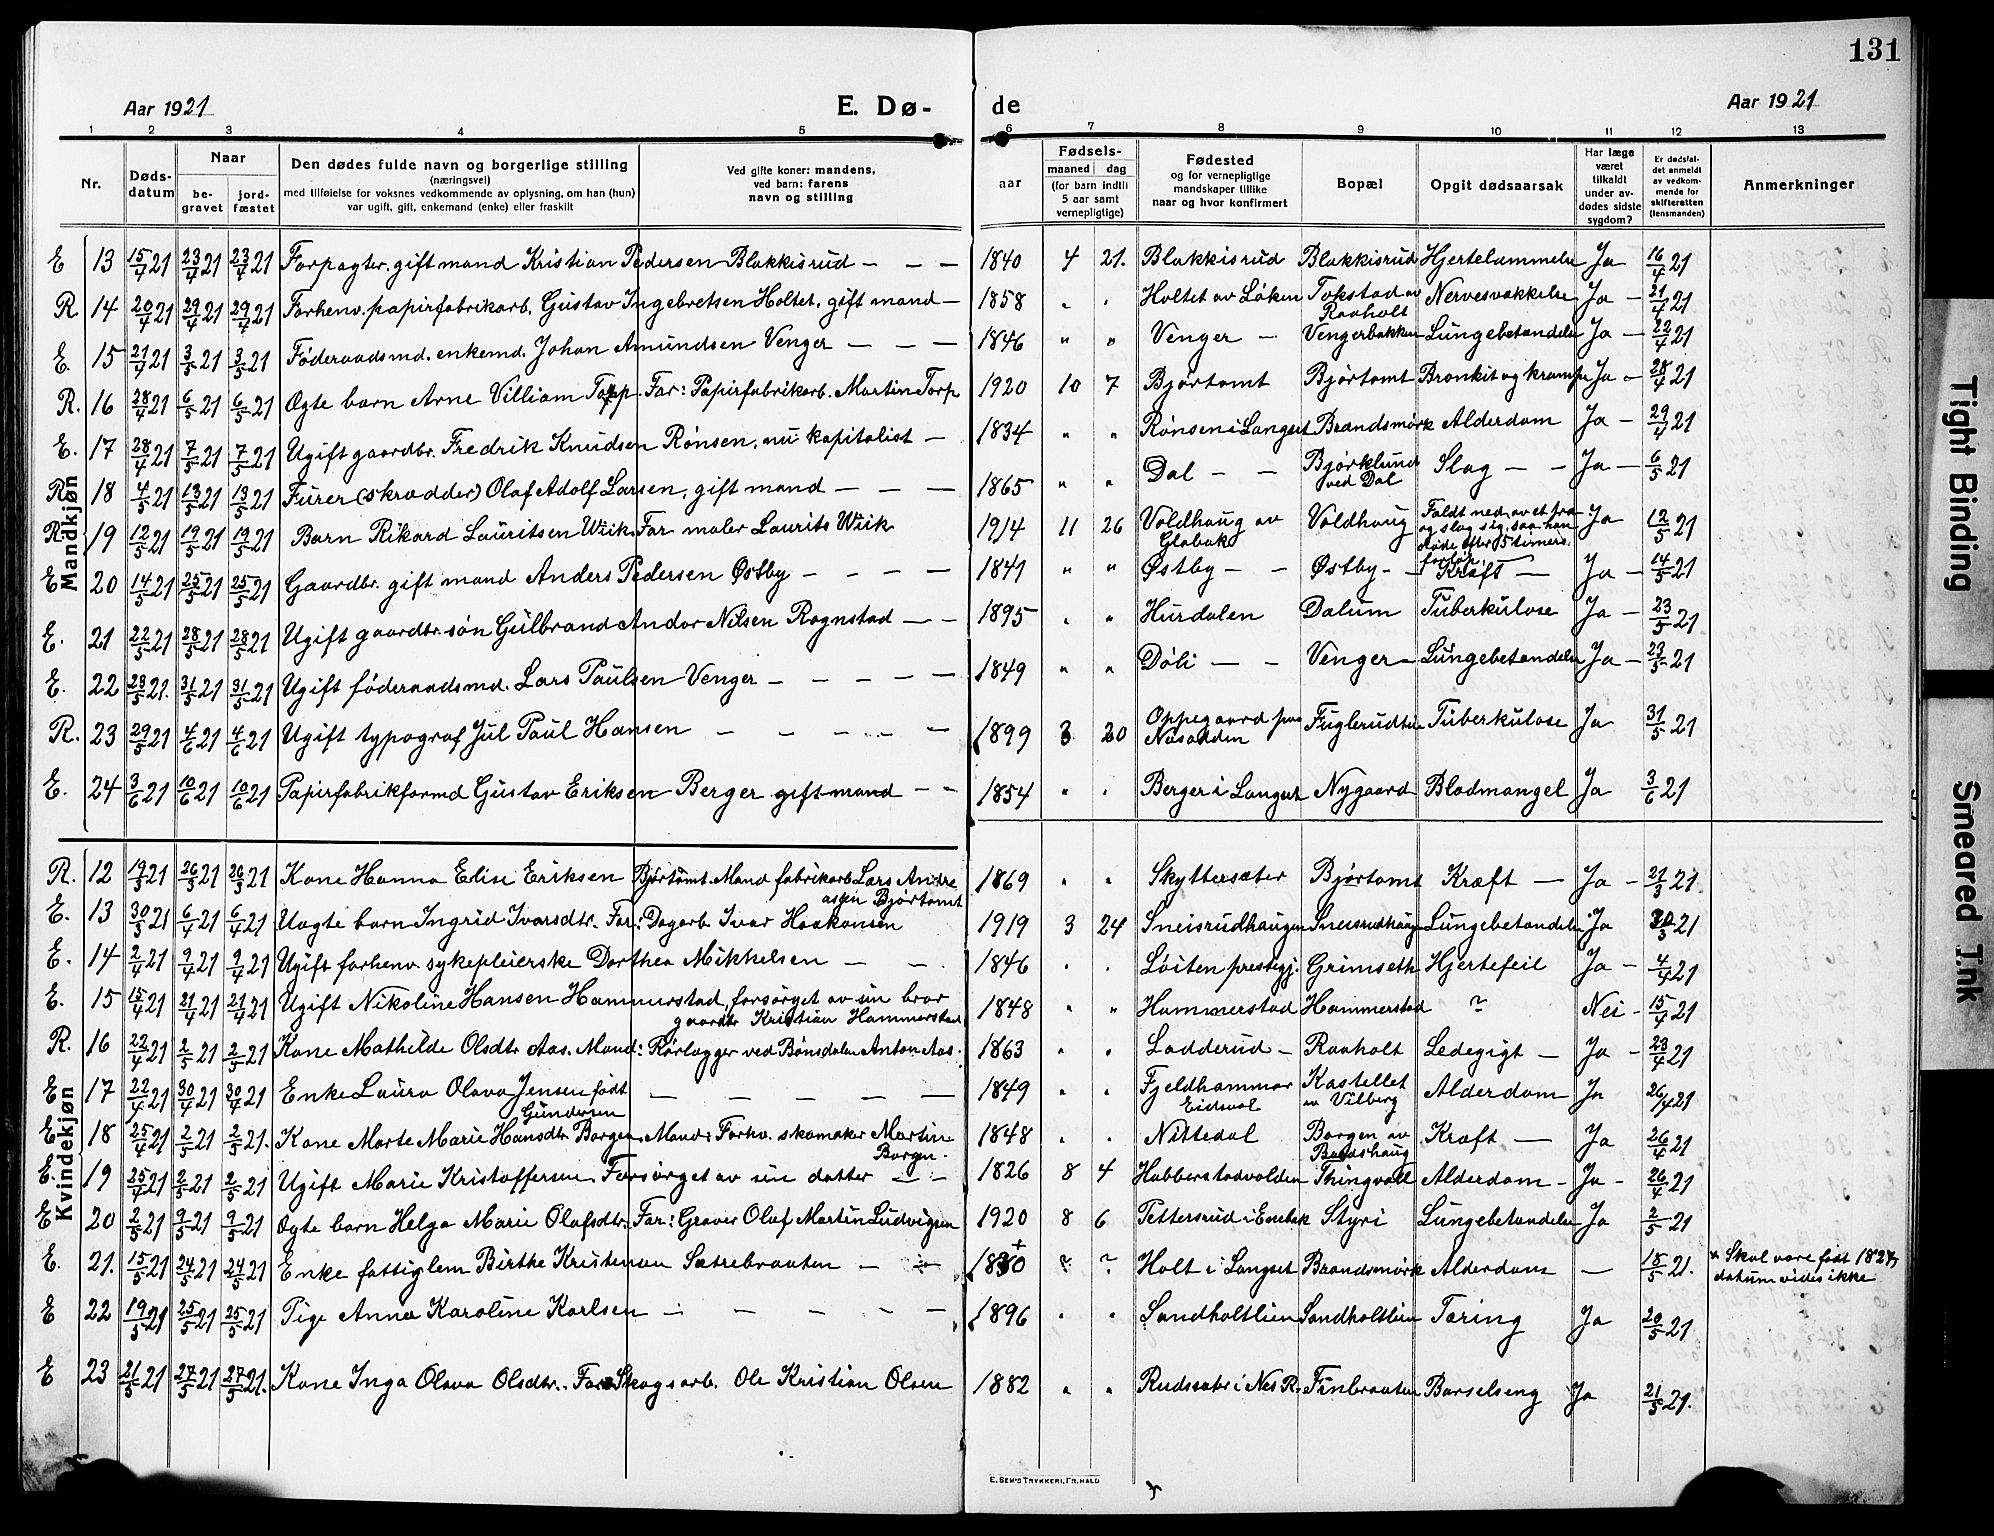 131
Aar 1921 E. Dø- de Aar 1921
1 2 3 4 5 6 7 8 9 10 11 12 13
Nr. Døds-datum Naar be-gravet jord-fæstet Den dødes fulde navn og borgerlige stilling (næringsvei) med tilføielse for voksnes vedkommende av oplysning, om han (hun) var ugift, gift, enkemand (enke) eller fraskilt Ved gifte koner: mandens, ved barn: farens navn og stilling Fødsels- aar maaned dag (for barn indtil 5 aar samt vernepligtige) Fødested og for vernepligtige mandskaper tillike naar og hvor konfirmert Bopæl Opgit dødsaarsak Har læge været tilkaldt under av-dødes sidste sygdom? Er dødsfal-det anmeldt av vedkom-mende for skifteretten (lensmanden) Anmerkninger
Mandkjøn
E 13 15/4 21 23/4 21 23/4 21 Forpagter, gift mand Kristian Pedersen Blakkisrud — — — 1840 4 21. Blakkisrud Blakkisrud Hjertelammelse Ja — 16/4 21
R. 14 20/4 21 29/4 21 29/4 21 Forhenv. papirfabrikarb. Gustav Ingebretsen Holtet, gift mand — 1858 " " Holtet av Løken Tokstad av Raaholt Nervesvækkelse Ja — 21/4 21
E. 15 21/4 21 3/5 21 3/5 21 Føderaadsmd. enkemd. Johan Amundsen Venger — — — 1846 " " Venger — Vengerbakken Lungebetændelse Ja — 22/4 21
R. 16 28/4 21 6/5 21 6/5 21 Ægte barn Arne Villiam Torp. Far: Papirfabrikarb. Martin Torp 1920 10 7 Bjørtomt Bjørtomt Bronkit og krampe Ja — 28/4 21
E. 17 28/4 21 7/5 21 7/5 21 Ugift gaardbr. Fredrik Knudsen Rønsen, nu kapitalist — 1834 " " Rønsen i Langset Brandsmørk Alderdom Ja — 29/4 21
R. 18 4/5 21 13/5 21 13/5 21 Furer (skrædder) Olaf Adolf Larsen, gift mand — — — 1865 " " Dal — — Bjørklund ved Dal Slag — — Ja — 6/5 21
R. 19 12/5 21 19/5 21 19/5 21 Barn Rikard Lauritsen Wiik. Far maler Laurits Wiik 1914 11 26 Voldhaug av Globakk Voldhaug Faldt ned av et træ og slog sig, saa han døde efter 5 timers forløp Ja 12/5 21
E. 20 14/5 21 25/5 21 25/5 21 Gaardbr. gift mand Anders Pedersen Østby — — — — 1841 " " Østby — — Østby — — Kræft — Ja — 14/5 21
E. 21 22/5 21 28/5 21 28/5 21 Ugift gaardbr. søn Gulbrand Andor Nilsen Rognstad — — 1895 " " Hurdalen Dalum Tuberkulose Ja — 23/5 21
E. 22 23/5 21. 31/5 21 31/5 21 Ugift føderaadsmd. Lars Paulsen Venger — — — — — 1849 " " Døli — — Venger — Lungebetændelse Ja — 23/5 21
R. 23 29/5 21 4/6 21 4/6 21 Ugift typograf Jul Paul Hansen — — — — — 1899 3 20 Oppegaard paa Næsodden Fuglerudtu Tuberkulose Ja 31/5 21
E. 24 3/6 21 10/6 21 10/6 21 Papirfabrikformd Gustav Eriksen Berger gift mand — — 1854 " " Berger i Langset Nygaard Blodmangel Ja 3/6 21
Kvindekjøn
R. 12 19/3 21 26/3 21 26/3 21 Kone Hanna Elise Eriksen Bjørtomt. Mand fabrikarb. Lars Andreassen Bjørtomt 1869 " " Skyttersæter Bjørtomt Kræft — Ja — 21/3 21.
E. 13 30/3 21 6/4 21 6/4 21 Uægte barn Ingrid Ivarsdtr. Far: Dagarb. Ivar Haakonsen 1919 3 24 Sneisrudhaugen Sneisrudhaug Lungebetændelse Ja 30/3 21
E. 14 2/4 21 9/4 21 9/4 21 Ugift forhenv. sykepleierske Dorthea Mikkelsen — — 1846 " " Løiten prestegj. Grimseth Hjertefeil Ja — 4/4 21
E. 15 15/4 21 21/4 21 21/4 21 Ugift Nikoline Hansen Hammerstad, forsørget av sin bror gaardbr Kristian Hammerstad 1848 " " Hammerstad Hammerstad ? Nei — 15/4 21
R. 16 22/4 21 2/5 21 2/5 21 Kone Mathilde Olsdtr Aas. Mand: Rørlægger ved Bønsdalen Anton Aas. 1863 " " Ladderud — Raaholt Ledegigt — Ja — 23/4 21
E 17 22/4 21 30/4 21 30/4 21 Enke Laura Olava Jensen født Gundersen — — — — — 1849 " " Fjeldhammer Eidsvol Kastellet av Vilberg Alderdom Ja 26/4 21
E 18 25/4 21 2/5 21 2/5 21. Kone Marte Marie Hansdtr. Borgen. Mand: Forhv. skomaker Martin Borgen. 1848 " " Nittedal Borgen av Bandshaug Kræft — Ja 26/4 21
E. 19 25/4 21 2/5 21 2/5 21 Ugift Marie Kristoffersen. Forsørget av sin datter — — 1826 8 4 Habberstadvolden Thingvold Alderdom — Ja — 26/4 21
E 20 2/5 21 9/5 21 9/5 21 Ægte barn Helga Marie Olafsdtr. Far: Graver Olaf Martin Ludvigsen 1920 8 6 Tettersrud i Enebak Styri Lungebetændelse Ja 2/5 21
E. 21. 15/5 21 24/5 21 24/5 21 Enke fattiglem Birthe Kristensen Sætrebraaten — — 1830 + ? ? Holt i Langset Brandsmørk Alderdom — 18/5 21. + Skal være født 1827, datum vides ikke
E 22 19/5 21 25/5 21 25/5 21 Pige Anna Karoline Karlsen — — — — — 1896 " " Sandholtlien Sandholtlien Tæring Ja 20/5 21
E 23 21/5 21 27/5 21 27/5 21. Kone Inga Olava Olsdtr. Far Skogsarb. Ole Kristian Olsen 1882 " " Rudssæter i Nes R. Finbraaten Barselseng Ja 21/5 21.
E. SEM'S TRYKKERI, FR.HALD
Tight Binding
Smeared Ink